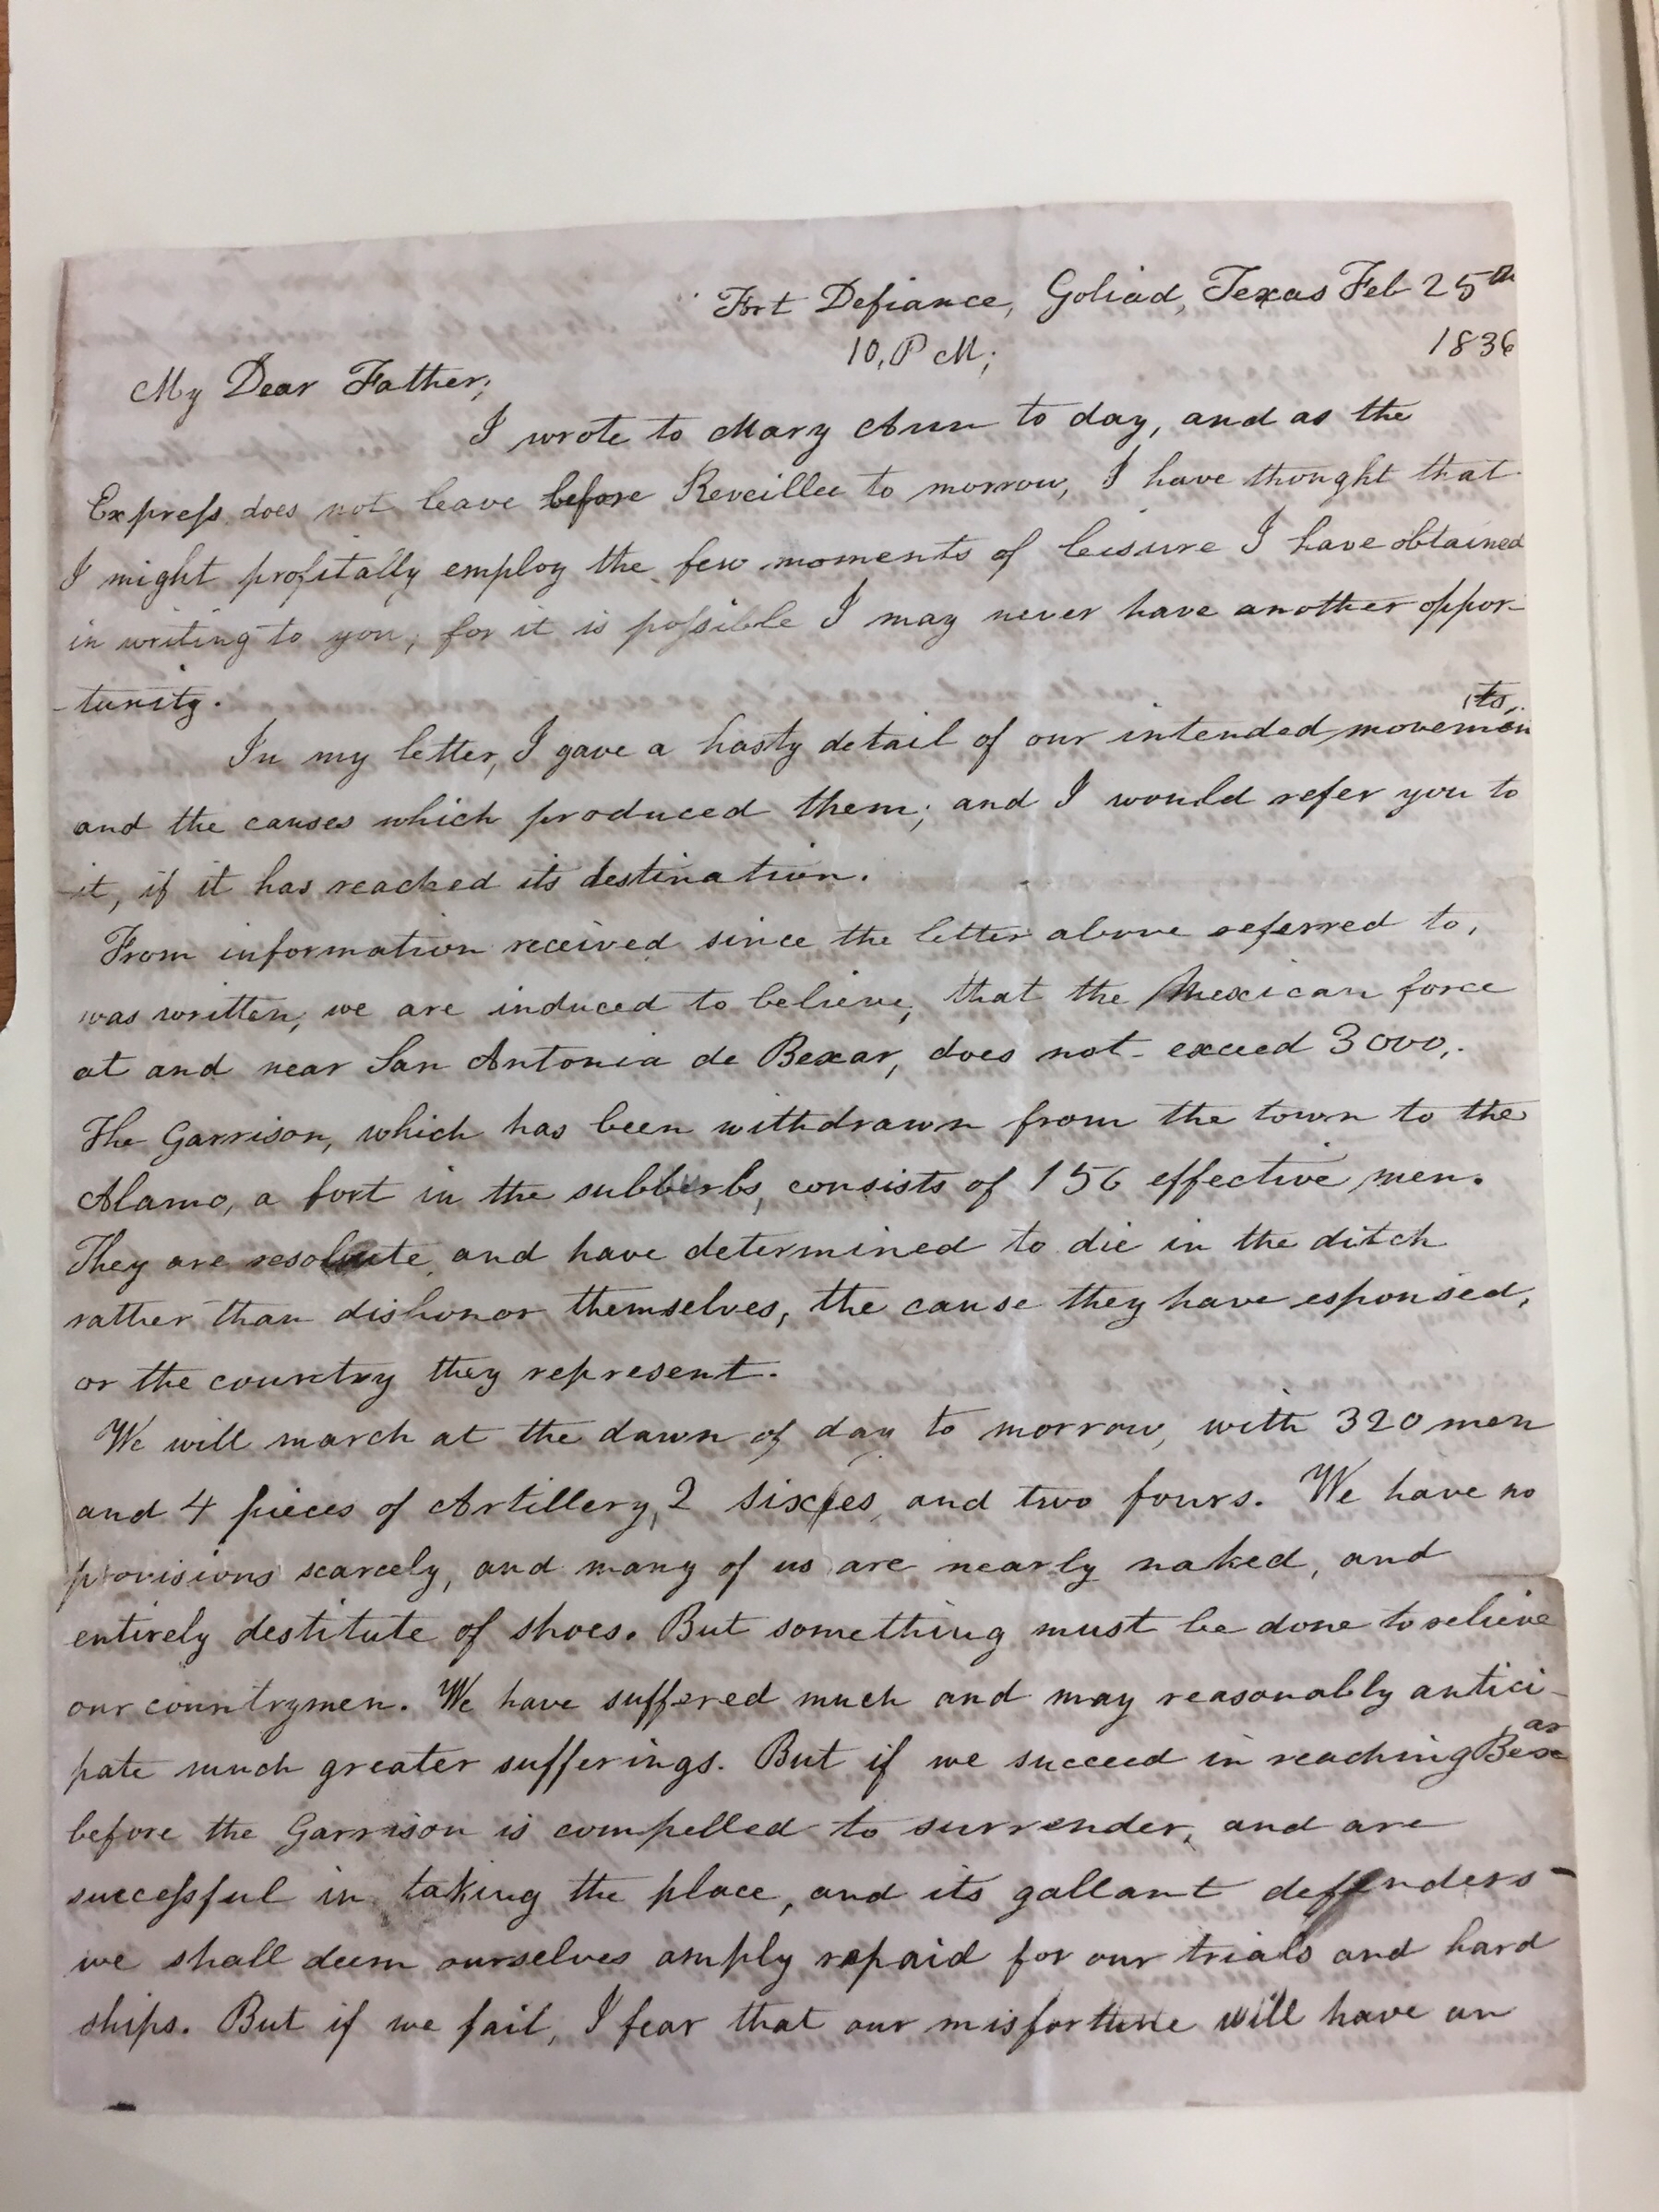 Fort Defiance, Goliad, Texas Feb 25th
10, P M; 1836
My Dear Father;
I wrote to Mary Ann to day, and as the
Express does not leave before Reveillee to morrow, I have thought that
I might profitally employ the few moments of leisure I have obtained
in writing to you, for it is possible I may never have another oppor-
-tunity.
In my letter, I gave a hasty detail of our intended movements,
and the causes which produced them; and I would refer you to
it, if it has reached its destination.
From information received since the letter above referred to,
was written, we are induced to believe, that the Mexican force
at and near San Antonia de Bexar, does not exceed 3000,.
The Garrison, which has been withdrawn from the town to the
Alamo, a fort in the subburbs, consists of 156 effective men.
They are resolute, and have determined to die in the ditch
rather than dishonor themselves, the cause they have espoused,
or the country they represent.
We will march at the dawn of day to morrow, with 320 men
and 4 pieces of Artillery, 2 sixes, and two fours. We have no
provisions scarcely, and many of us are nearly naked, and
entirely destitute of shoes. But something must be done to relieve
our countrymen. We have suffered much and may reasonably antici-
pate much greater sufferings. But if we succeed in reaching Bexar
before the Garrison is compelled to surrender, and are
successful in taking the place, and its gallant deffenders-
we shall deem ourselves amply repaid for our trials and hard
ships. But if we fail, I fear that our misfortune will have an